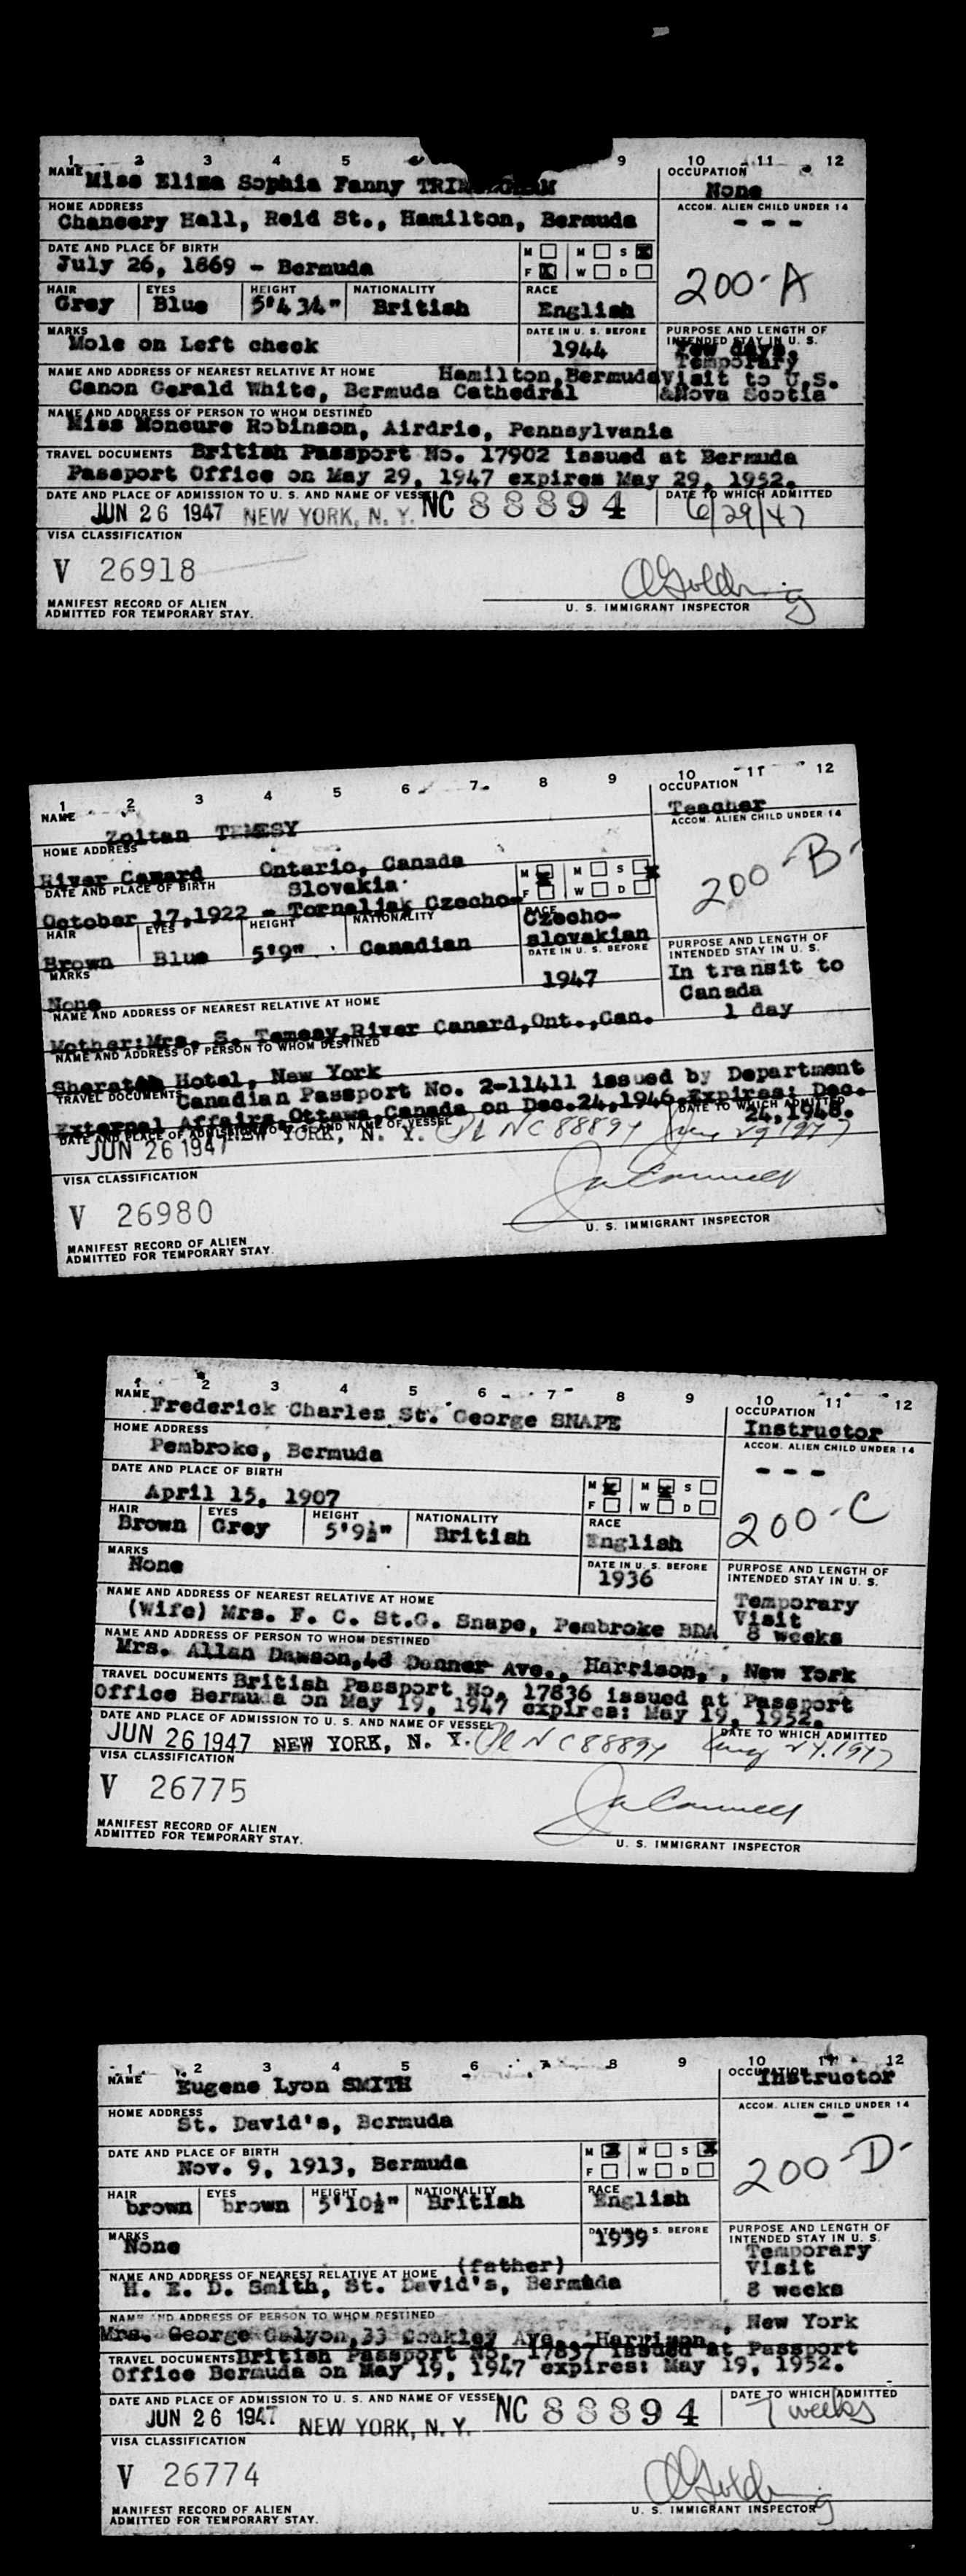 1 2 3 4 5 6 9 10 11 12
NAME Miss Eliza Sophia Fanny
OCCUPATION
None
HOME ADDRESS
Chancery Hall, Reid St., Hamilton, Bermuda
ACCOM. ALIEN CHILD UNDER 14
- - -
DATE AND PLACE OF BIRTH
July 26, 1869 - Bermuda
M M S X
F X W D
200-A
HAIR EYES HEIGHT NATIONALITY RACE
Grey Blue 5'4 3/4" British English
MARKS
Mole on Left cheek
DATE IN U. S. BEFORE
1944
PURPOSE AND LENGTH OF
INTENDED STAY IN U. S.
Few days,
Temporary
Visit to U.S.
&Nova Scotia
NAME AND ADDRESS OF NEAREST RELATIVE AT HOME Hamilton, Bermuda
Canon Gerald White, Bermuda Cathedral
NAME AND ADDRESS OF PERSON TO WHOM DESTINED
Miss Moncure Robinson, Airdrie, Pennsylvania
TRAVEL DOCUMENTS British Passport No. 17902 issued at Bermuda
Passport Office on May 29, 1947 expires May 29, 1952.
DATE AND PLACE OF ADMISSION TO U. S. AND NAME OF VESSEL
JUN 26 1947 NEW YORK, N. Y. NC 88894
DATE TO WHICH ADMITTED
6/29/47
VISA CLASSIFICATION
V 26918
MANIFEST RECORD OF ALIEN
ADMITTED FOR TEMPORARY STAY.
U. S. IMMIGRANT INSPECTOR
1 2 3 4 5 6 7 8 9 10 11 12
NAME
Zoltan TEMESY
OCCUPATION
Teacher
ACCOM. ALIEN CHILD UNDER 14
HOME ADDRESS
River Canard Ontario, Canada
DATE AND PLACE OF BIRTH Slovakia
October 17,1922 - Tornaljak Czecho-
M X M S X
F W D
200-B-
HAIR EYES HEIGHT NATIONALITY RACE
Brown Blue 5'9" Canadian Czecho-
slovakian
MARKS
None
DATE IN U. S. BEFORE
1947
PURPOSE AND LENGTH OF
INTENDED STAY IN U. S.
In transit to
Canada
1 day
NAME AND ADDRESS OF NEAREST RELATIVE AT HOME
Mother:Mrs. S. Temesy,River Canard,Ont.,Can.
NAME AND ADDRESS OF PERSON TO WHOM DESTINED
Sheraton Hotel, New York
TRAVEL DOCUMENTS Canadian Passport No. 2-11411 issued by Department
External Affairs Ottawa,Canada on Dec.24,1946.Expires: Dec.
24,1948.
DATE AND PLACE OF ADMISSION TO U. S. AND NAME OF VESSEL
DATE TO WHICH ADMITTED
JUN 26 1947 NEW YORK, N. Y. Pl NC 88894 29 1947
VISA CLASSIFICATION
V 26980
MANIFEST RECORD OF ALIEN
ADMITTED FOR TEMPORARY STAY.
U. S. IMMIGRANT INSPECTOR
1 2 3 4 5 6 7 8 9 10 11 12
NAME Frederick Charles St. George SNAPE
OCCUPATION
Instructor
HOME ADDRESS
Pembroke, Bermuda
ACCOM. ALIEN CHILD UNDER 14
- - -
DATE AND PLACE OF BIRTH
April 15, 1907
M X M X S
F W D
200-C
HAIR EYES HEIGHT NATIONALITY RACE
Brown Grey 5'9½" British English
MARKS
None
DATE IN U. S. BEFORE
1936
PURPOSE AND LENGTH OF
INTENDED STAY IN U. S.
Temporary
Visit
8 weeks
NAME AND ADDRESS OF NEAREST RELATIVE AT HOME
(Wife) Mrs. F. C. St.G. Snape, Pembroke BDA
NAME AND ADDRESS OF PERSON TO WHOM DESTINED
Mrs. Allan Dawson, Ave., Harrison, , New York
TRAVEL DOCUMENTS British Passport No. 17836 issued at Passport
Office Bermuda on May 19, 1947 expires: May 19, 1952.
DATE AND PLACE OF ADMISSION TO U. S. AND NAME OF VESSEL
DATE TO WHICH ADMITTED
JUN 26 1947 NEW YORK, N. Y. Pl NC 88894 Aug 24.1947
VISA CLASSIFICATION
V 26775
MANIFEST RECORD OF ALIEN
ADMITTED FOR TEMPORARY STAY.
U. S. IMMIGRANT INSPECTOR
1 2 3 4 5 6 7 8 9 10 11 12
NAME Eugene Lyon SMITH
OCCUPATION
Instructor
HOME ADDRESS
St. David's, Bermuda
ACCOM. ALIEN CHILD UNDER 14
- -
DATE AND PLACE OF BIRTH
Nov. 9, 1913, Bermuda
M X M S X
F W D
200-D-
HAIR EYES HEIGHT NATIONALITY RACE
brown brown 5'10½" British English
MARKS
None
DATE IN U. S. BEFORE
1939
PURPOSE AND LENGTH OF
INTENDED STAY IN U. S.
Temporary
Visit
8 weeks
(father)
NAME AND ADDRESS OF NEAREST RELATIVE AT HOME
H. E. D. Smith, St. David's, Bermuda
NAME AND ADDRESS OF PERSON TO WHOM DESTINED
Mrs. George Galyon,33 Coakley Ave., Harrison, , New York
TRAVEL DOCUMENTS British Passport No. 17837 issued at Passport
Office Bermuda on May 19, 1947 expires: May 19, 1952.
DATE AND PLACE OF ADMISSION TO U. S. AND NAME OF VESSEL
DATE TO WHICH ADMITTED
JUN 26 1947 NEW YORK, N. Y. NC 88894 7 weeks
VISA CLASSIFICATION
V 26774
MANIFEST RECORD OF ALIEN
ADMITTED FOR TEMPORARY STAY.
U. S. IMMIGRANT INSPECTOR